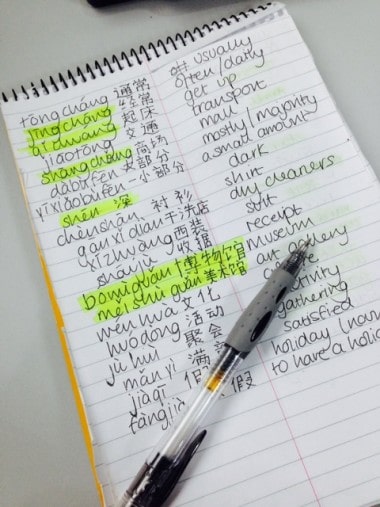 tōngcháng 通常 usually
jīngcháng 经常 often/daily
qǐchuáng 起床 get up
jiāotōng 交通 transport
shāngchǎng 商场 mall
dàbùfèn 大部分 mostly/majority
yīxiǎobùfèn 一小部分 a small amount
shēn 深 dark
chènshān 衬衫 shirt
gānxǐdiàn 干洗店 dry cleaners
xīzhuāng 西装 suit
shōujù 收据 receipt
bówùguǎn 博物馆 museum
měishùguǎn 美术馆 art gallery
wénhuà 文化
huódòng 活动 activity
jùhuì 聚会 gathering
mǎnyì 满 satisfied
jiàqī 假 holiday
fàngjià 假 to have a